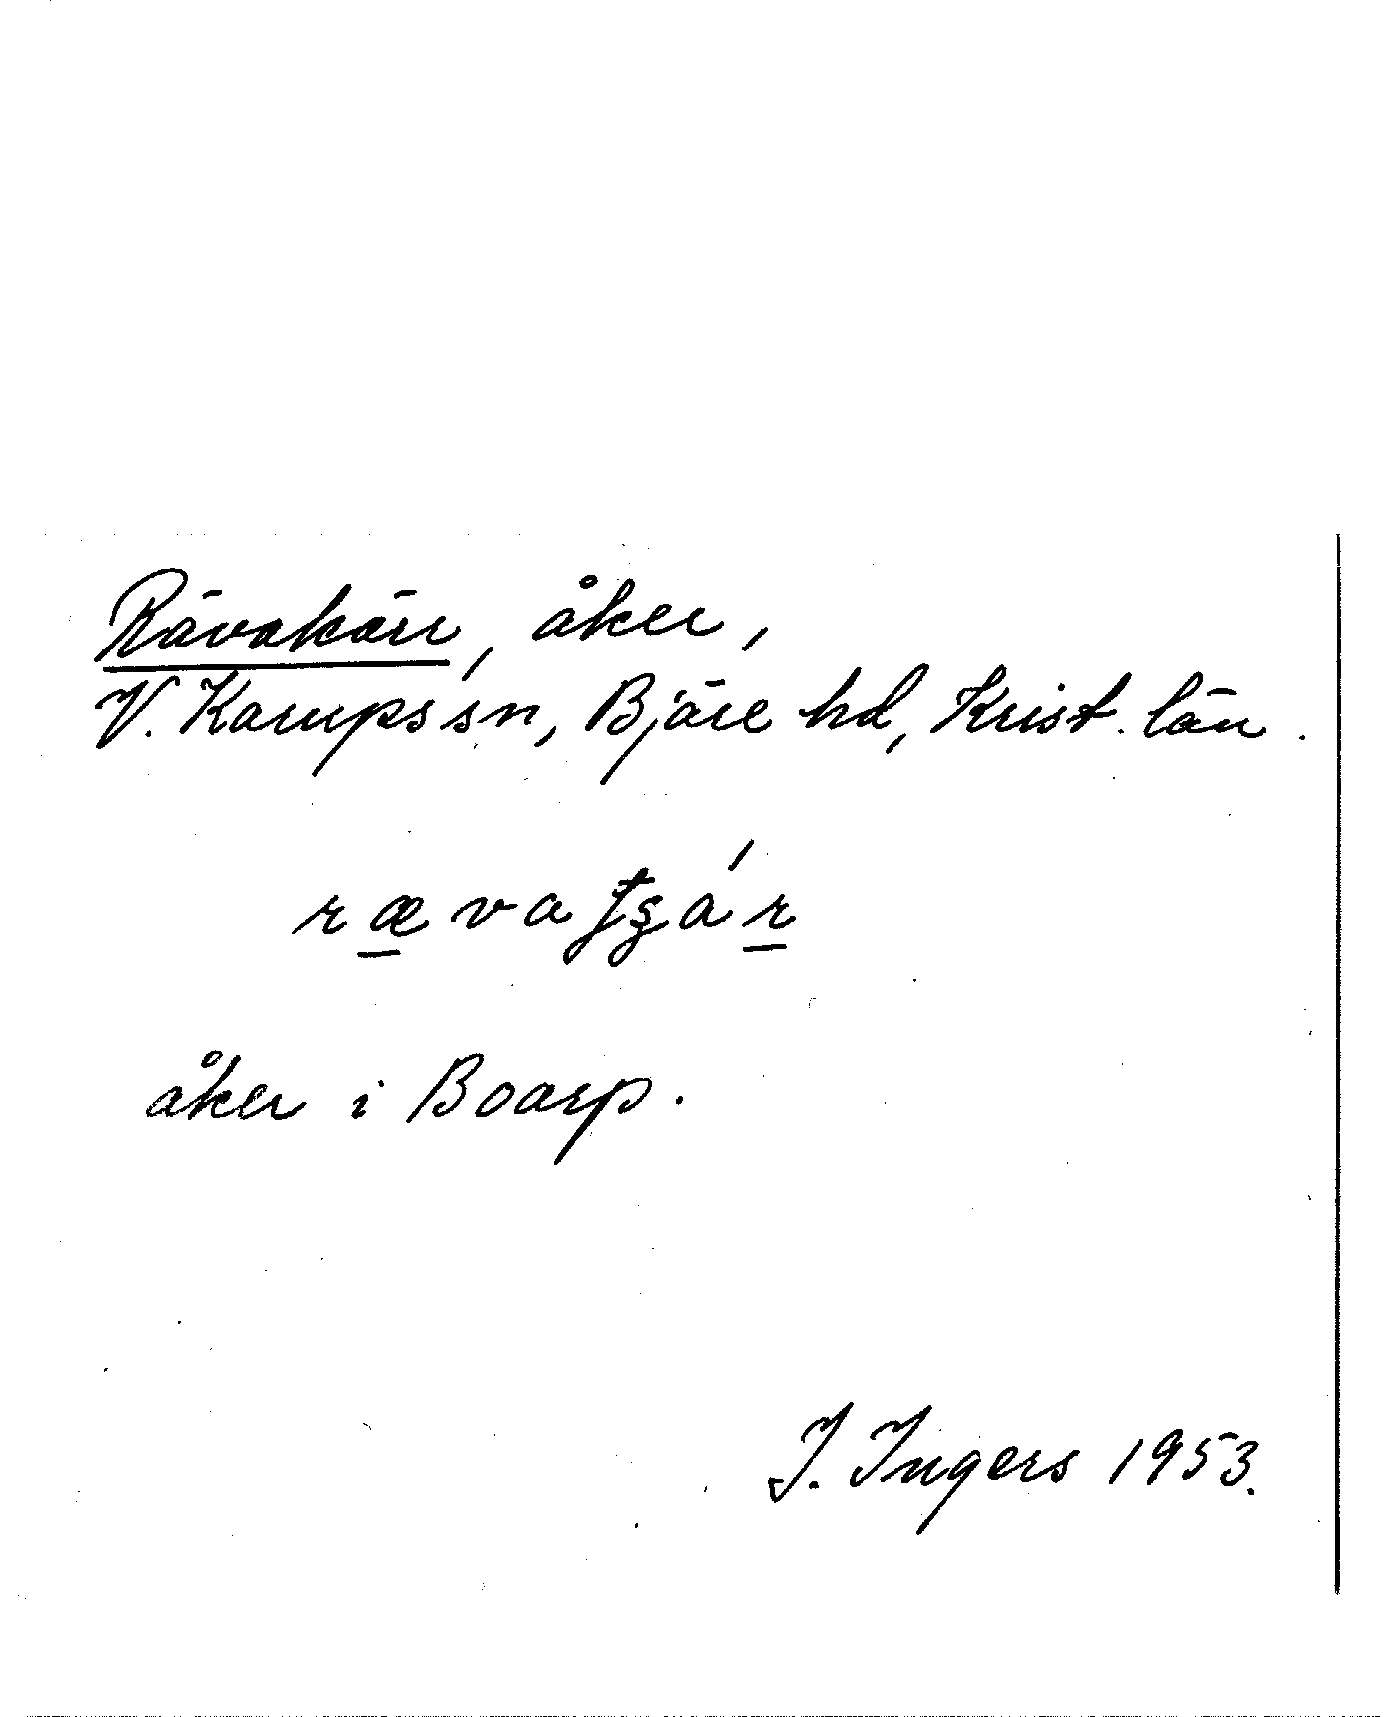 Rävakärr, åker,
V. Karups sn, Bjäre hd, Krist. län.
åker i Boarp.
I. Ingers 1953.